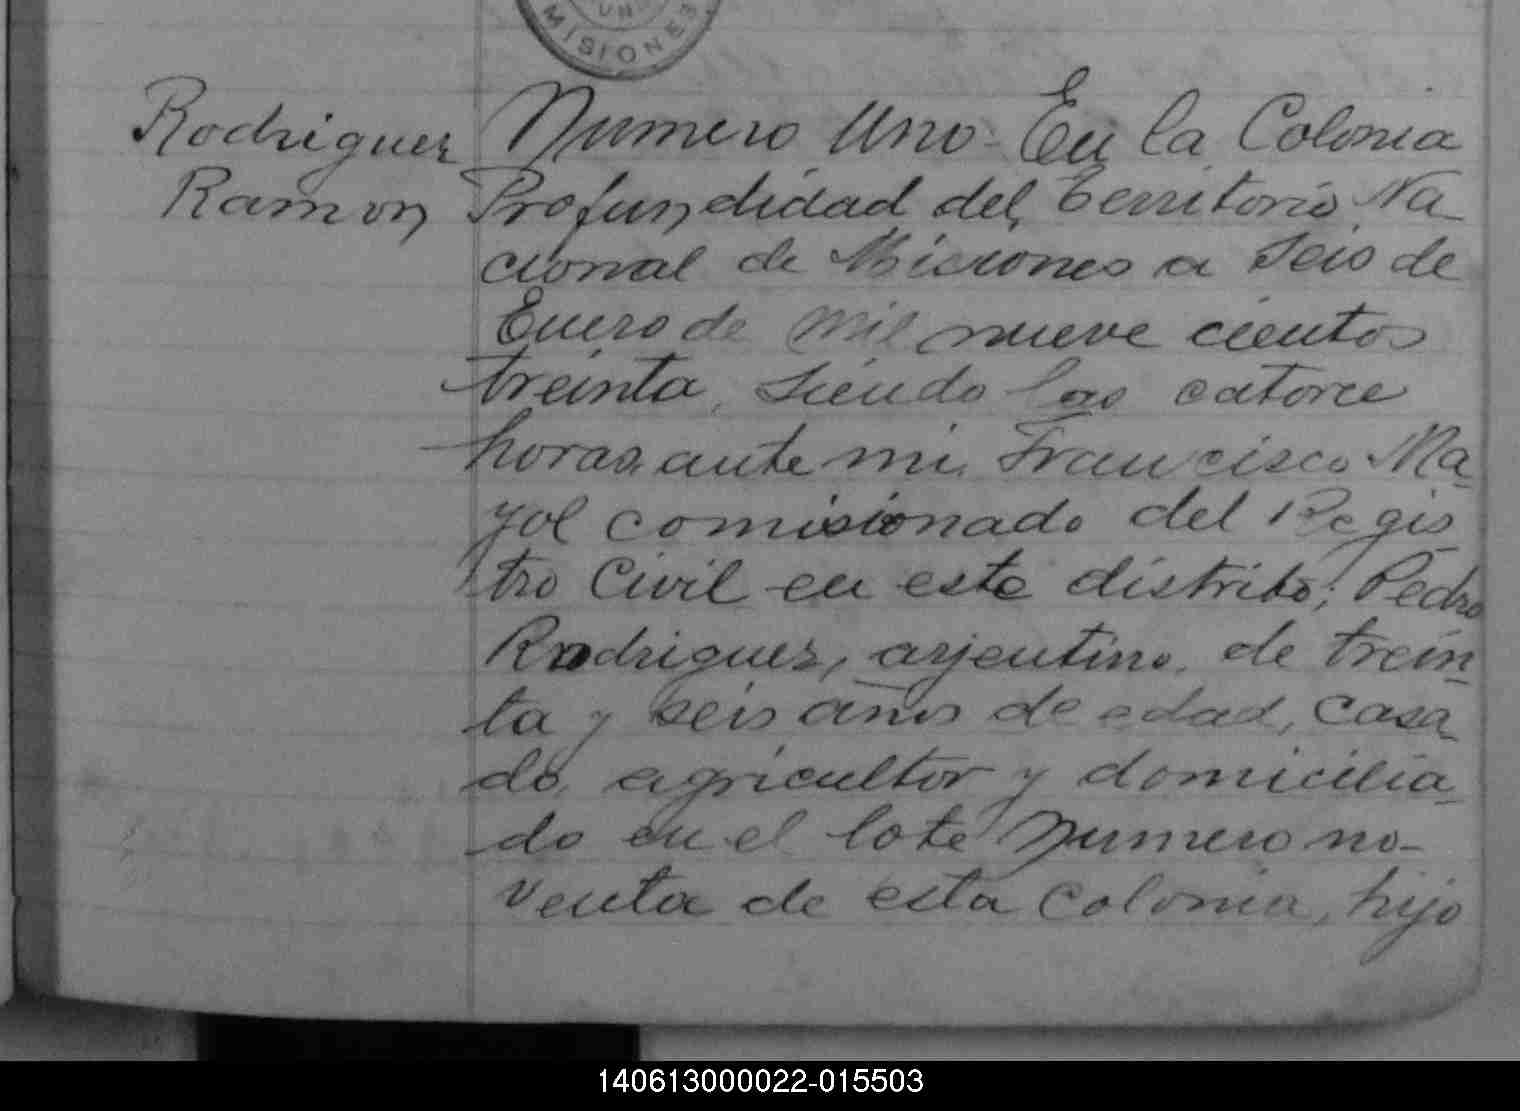 MISIONES
Rodriguez
Ramon
Numero Uno- En la Colonia
Profundidad del Territorio Na
cional de Misiones a Seis de
Enero de mil nueve cientos
treinta, siendo las catorce
horas, ante mi, Francisco Ma-
yol comisionado del Regis
tro Civil en este distrito; Pedro
Rodriguez, arjentino, de trein
ta y seis años de edad, casa
do, agricultor y domicilia-
do en el lote numero no-
venta de esta colonia, hijo
140613000022-015503